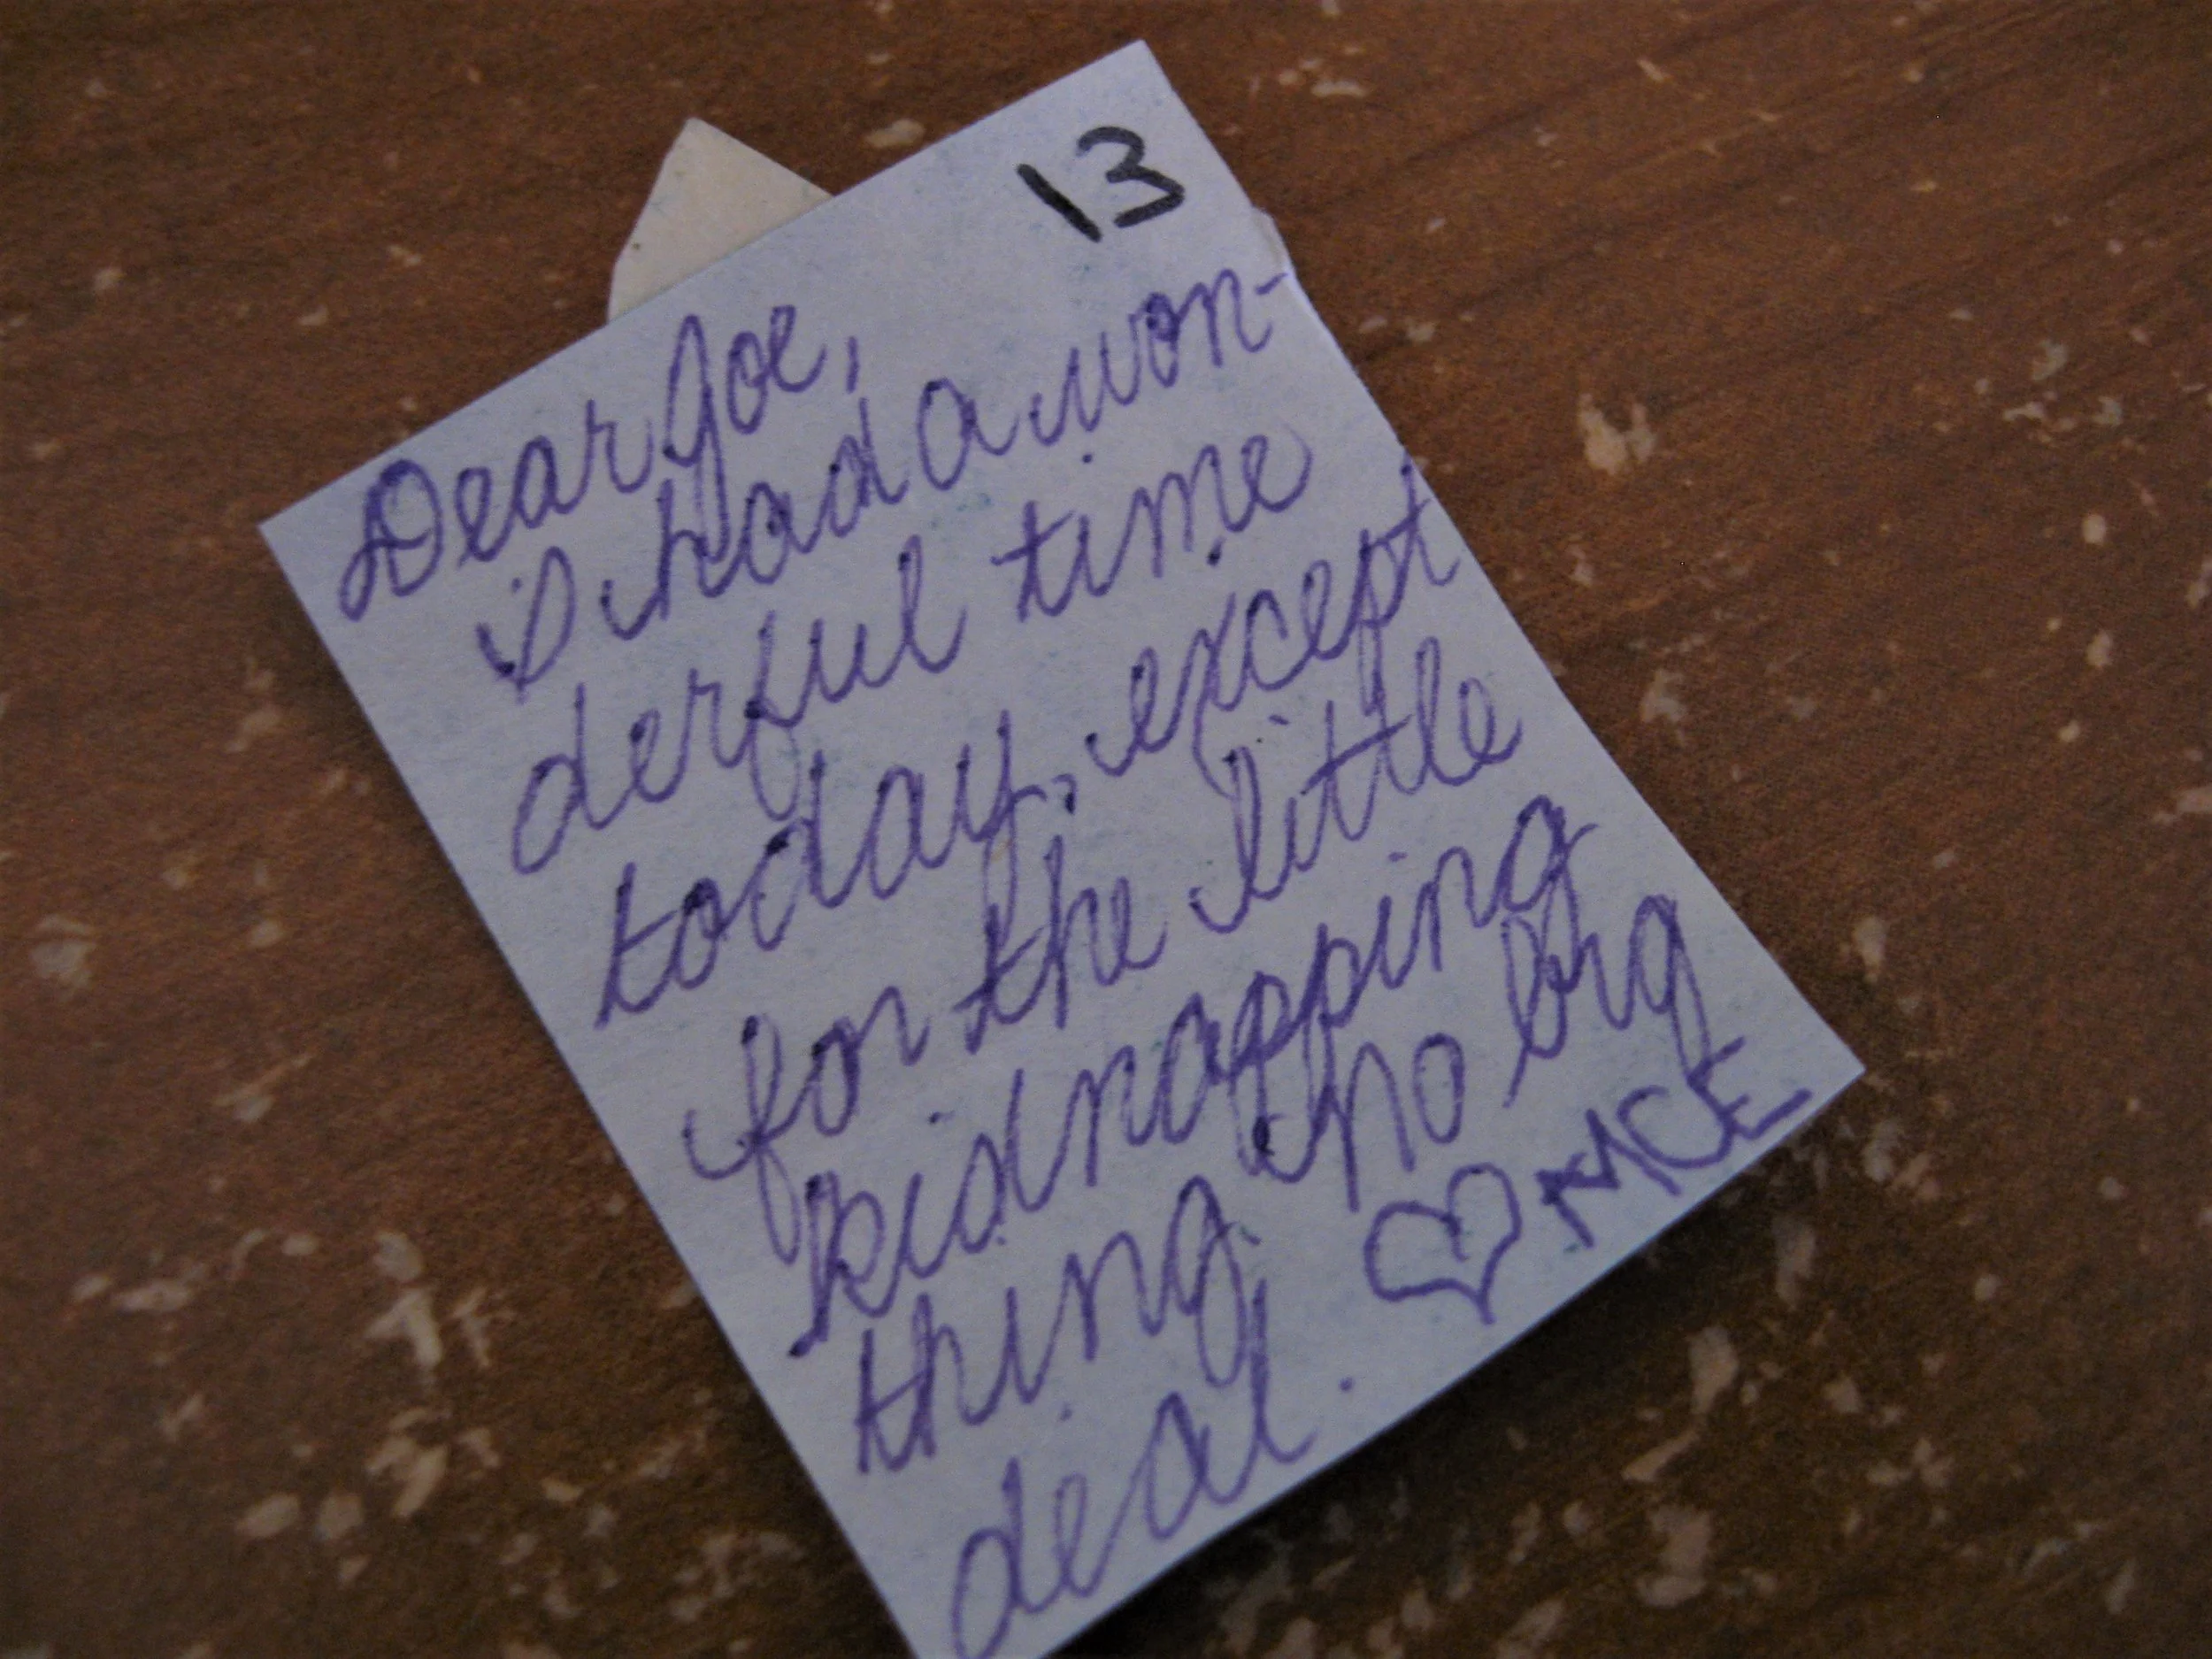 13
Dear Joe,
I had a won-
derful time
today, except
for the little
kidnapping
thing no big
deal. ♡ MCE